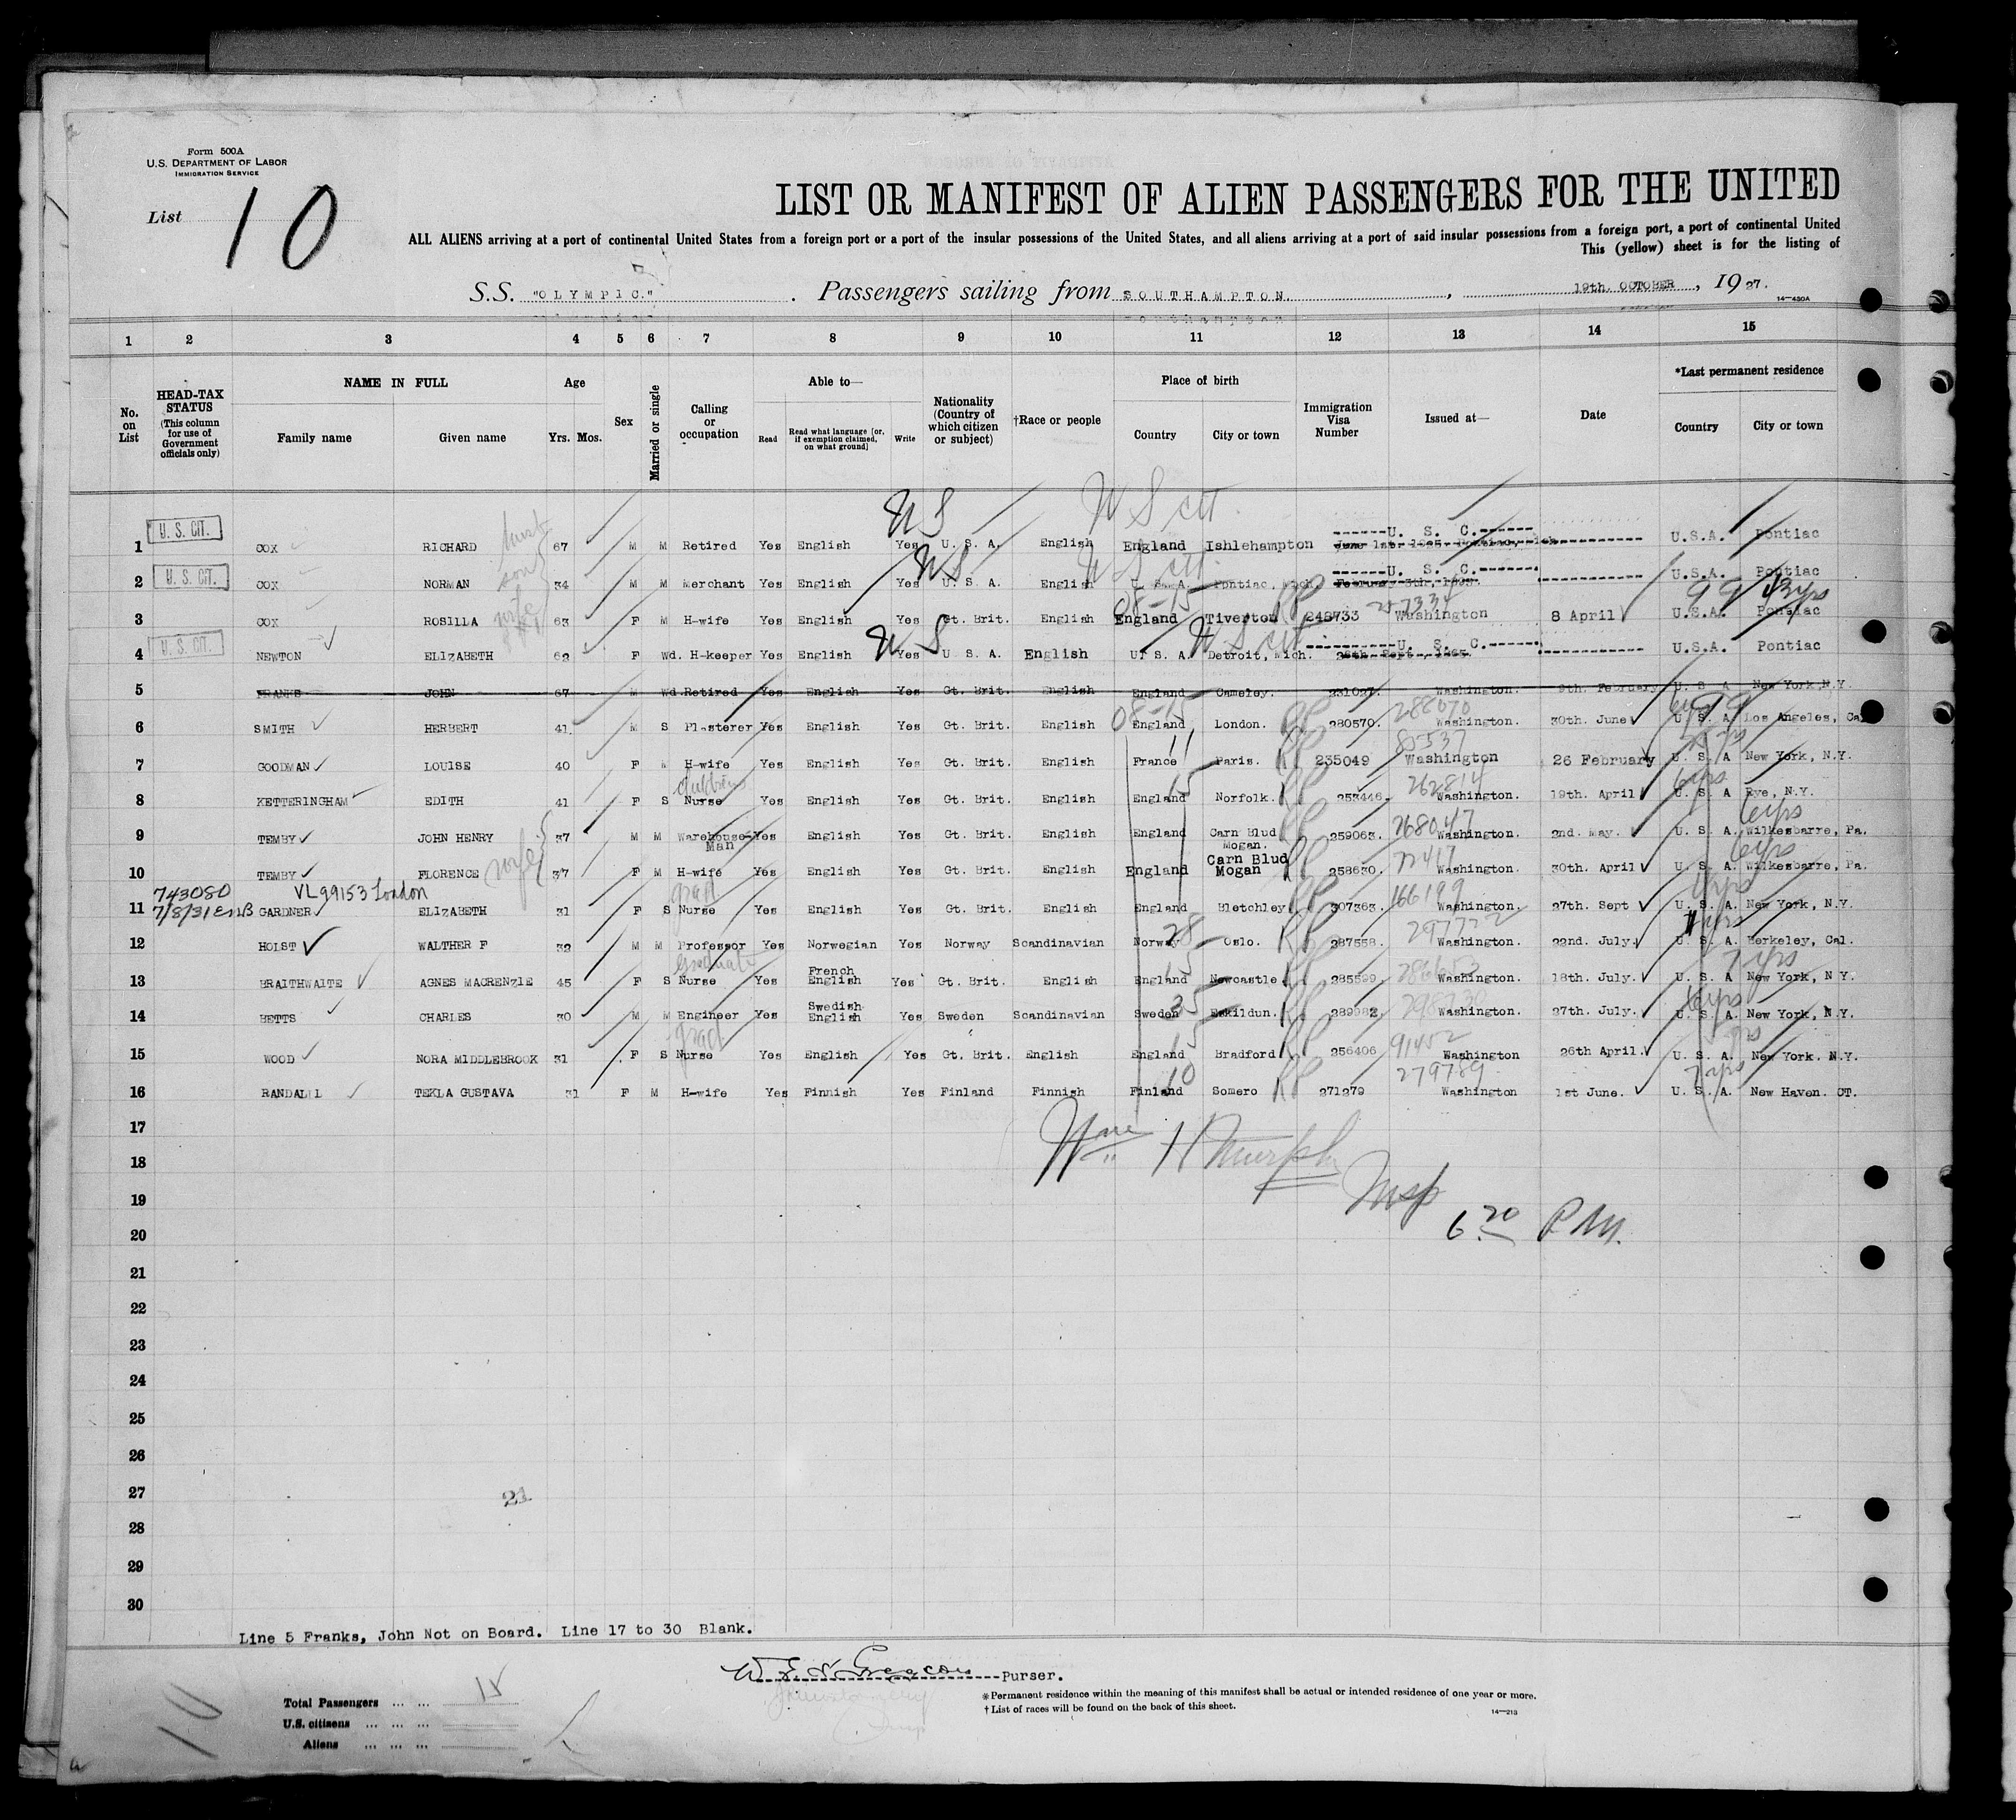 Form 500A
U.S. DEPARTMENT OF LABOR
IMMIGRATION SERVICE
List 10
LIST OR MANIFEST OF ALIEN PASSENGERS FOR THE UNITED
ALL ALIENS arriving at a port of continental United States from a foreign port or a port of the insular possessions of the United States, and all aliens arriving at a port of said insular possessions from a foreign port, a port of continental United
This (yellow) sheet is for the listing of
S.S. "OLYMPIC." . Passengers sailing from SOUTHAMPTON. , 19th. OCTOBER , 1927.
14—430A
1 2 3 4 5 6 7 8 9 10 11 12 13 14 15
No. on List
HEAD-TAX STATUS (This column for use of Government officials only)
NAME IN FULL
Family name Given name
Age
Yrs. Mos.
Sex
Married or single
Calling or occupation
Able to—
Read Read what language [or, if exemption claimed, on what ground] Write
Nationality (Country of which citizen or subject)
†Race or people
Place of birth
Country City or town
Immigration Visa Number
Issued at—
Date
*Last permanent residence
Country City or town
US WS ctt.
1 U. S. CIT. COX RICHARD 67 M M Retired Yes English Yes U. S. A. English England Ishlehampton ------U. S. C.------ U.S.A. Pontiac
husb
US WS ctt.
2 U. S. CIT. COX NORMAN 34 M M Merchant Yes English Yes U. S. A. English U. S. A. Pontiac, Mich. ------U. S. C.------ U.S.A. Pontiac
son
08-15 RP 257334 99 43yrs
3 COX ROSILLA 63 F M H-wife Yes English Yes Gt. Brit. English England Tiverton 248733 Washington 8 April U.S.A. Pontiac
wife
US WS ctt
4 U. S. CIT. NEWTON ELIZABETH 62 F Wd. H-keeper Yes English Yes U S. A. English U. S. A. Detroit, Mich. U. S. C.------ U.S.A. Pontiac
5 FRANKS JOHN 67 M Wd.Retired Yes English Yes Gt. Brit. English England Cameley. 231027. Washington. 9th. February U. S. A New York, N.Y.
08-15 RP 99
6 SMITH HERBERT 41 M S Plasterer Yes English Yes Gt. Brit. English England London. 280570. Washington. 30th. June U. S. A Los Angeles, Ca
11 RP
7 GOODMAN LOUISE 40 F M H-wife Yes English Yes Gt. Brit. English France Paris. 235049 Washington 26 February U. S. A New York, N.Y.
childrens 15 RP 262814 6yrs
8 KETTERINGHAM EDITH 41 F S Nurse Yes English Yes Gt. Brit. English England Norfolk. 253446. Washington. 19th. April U. S. A Rye, N.Y.
RP 268047 6yrs
9 TEMBY JOHN HENRY 37 M M Warehouse-Man Yes English Yes Gt. Brit. English England Carn Blud Mogan. 259063. Washington. 2nd. May. U. S. A. Wilkesbarre, Pa.
wife RP 6yrs
10 TEMBY FLORENCE 37 F M H-wife Yes English Yes Gt. Brit. English England Carn Blud Mogan 258630. Washington. 30th. April U. S. A. Wilkesbarre, Pa.
743080 VL99153 London
7/8/31 grad RP 166199
11 GARDNER ELIZABETH 31 F S Nurse Yes English Yes Gt. Brit. English England Bletchley 307363. Washington. 27th. Sept U. S. A. New York, N.Y.
28 RP 297722
12 HOLST WALTHER F 32 M M Professor Yes Norwegian Yes Norway Scandinavian Norway Oslo. 287558. Washington. 22nd. July. U. S. A. Berkeley, Cal.
Graduate 15 RP 7 yrs
13 BRAITHWAITE AGNES MACKENZIE 45 F S Nurse Yes French English Yes Gt. Brit. English England Newcastle 285599. Washington. 18th. July. U. S. A New York, N Y.
35 RP 298730
14 BETTS CHARLES 30 M M Engineer Yes Swedish English Yes Sweden Scandinavian Sweden Eskildun. 289982 Washington. 27th. July. U. S. A. New York, N.Y.
grad 15 RP 91452
15 WOOD NORA MIDDLEBROOK 31 F S Nurse Yes English Yes Gt. Brit. English England Bradford 256406 Washington 26th April. U. S. A. New York. N.Y.
10 RP 279789 7 yrs
16 RANDALL TEKLA GUSTAVA 31 F M H-wife Yes Finnish Yes Finland Finnish Finland Somero 271279 Washington 1st June. U. S. A. New Haven. CT.
17
Wm H Murphy
18
Insp
19
6.20 P.M.
20
21
22
23
24
25
26
27
21
28
29
30
Line 5 Franks, John Not on Board. Line 17 to 30 Blank.
Purser.
Total Passengers ... ... 15
U.S. citizens ... ... ...
Aliens ... ... ...
10
*Permanent residence within the meaning of this manifest shall be actual or intended residence of one year or more.
†List of races will be found on the back of this sheet.
14—213